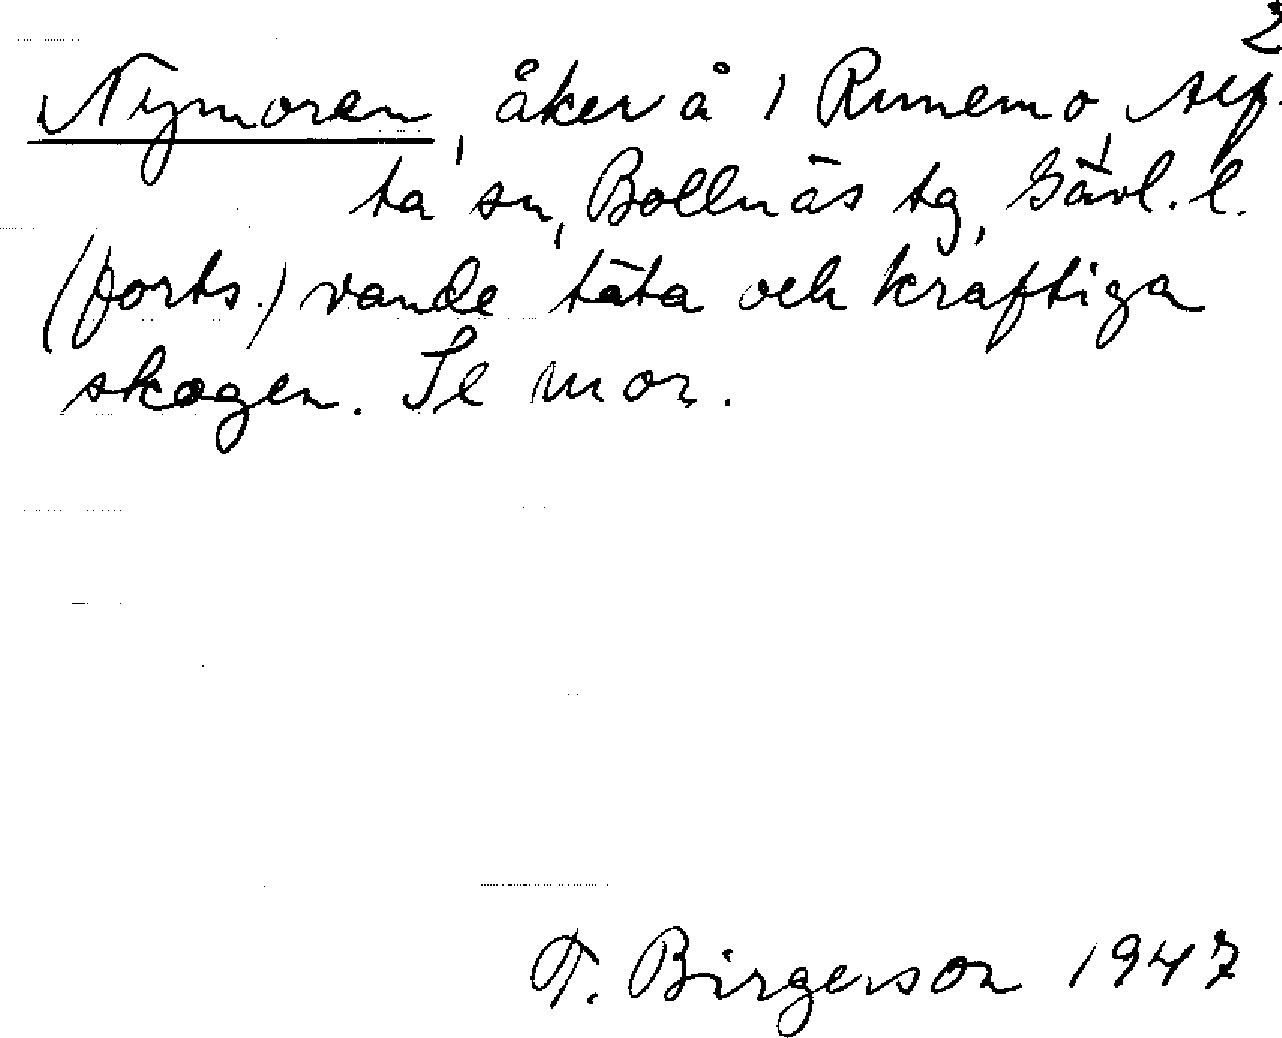 2
Nymoren, åker å 1 Runemo, Alf-
ta sn, Bollnäs tg, Gävl. l.
(forts.) vande täta och kraftiga
skogen. Se mon.
T. Birgerson 1947